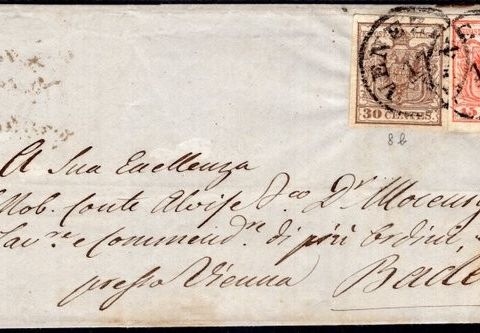 VENE
VENE
30 CENTES.
15
8 b
A Sua Eccellenza
Nob. Conte Alvise Fco. Dr. Mocenig
Cavre. e Commendre. di più Ordini
presso Vienna Bade